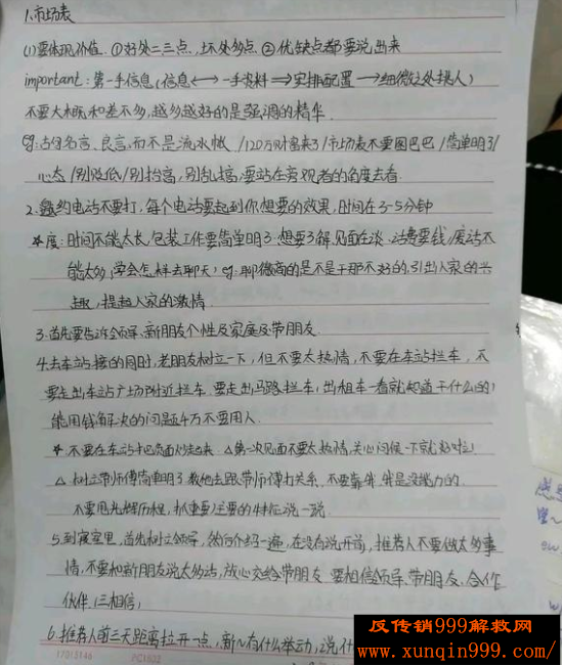 1.市场表
(1)要体现价值 ①好处二三点,坏处多点 ②优缺点都要说出来
important:第一手信息(信息⟷一手资料⟹安排配置→细微之处摸人)
不要大概和差不多,越多越好的是强调的精华
eg:古何名言、良言,而不是流水帐 /120万财富来了/市场表不要图巴巴/简单明了/
心态/别贬低/别抬高,别乱搞,要站在旁观者的角度去看
2.邀约电话不要打,每个电话要起到你想要的效果,时间在3-5分钟
*度:时间不能太长,包装工作要简单明了.想要了解,见面在谈,话费要钱,废话不
能太多,学会怎样去聊天,eg:聊微商的是不是干那不好的,引出人家的兴
趣,提起人家的激情
3.首先要告诉领导,新朋友个性及家庭及带朋友
4.去车站接的同时,老朋友树立一下,但不要太热情,不要在车站拦车,不
要走出车站广场附近拦车.要走出马路拦车,出租车一看就知道干什么的!
能用钱解决的问题千万不要用人.
*不要在车站把气氛炒起来.△第一次见面不要太热情,关心问候一下就好啦!
△树立带师傅简单明了.教他去跟带师傅打关系,不要靠我,我是没能力的.
不要甩光辉历程,抓重要主要的特征说一说
5.到寝室里,首先树立领导,然后介绍一遍,在没有说开前,推荐人不要做太多事
情,不要和新朋友说太多话,放心交给带朋友 要相信领导、带朋友、合作
伙伴(三相信)
6.推荐人前三天距离拉开一点,新~有什么举动,说什
17013146 PC1922
反传销999解救网
www.xunqin999.com/